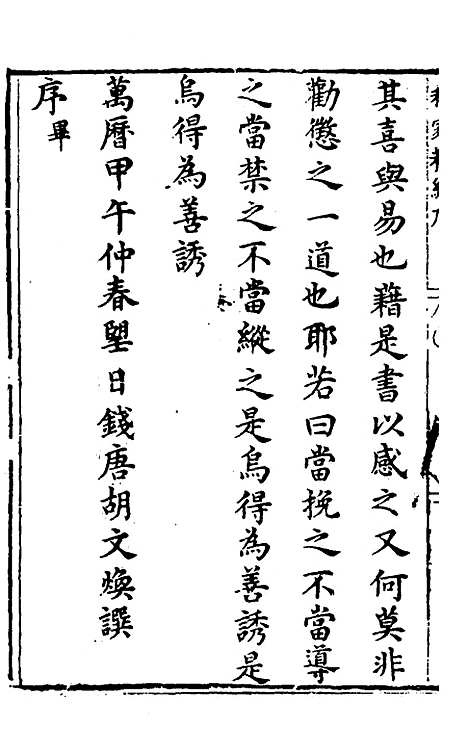 其喜與易也藉是書以感之又何莫非
勸懲之一道也耶若曰當挽之不當導
之當禁之不當縱之是烏得為善誘是
烏得為善誘
萬曆甲午仲春朢日錢唐胡文煥譔
序畢